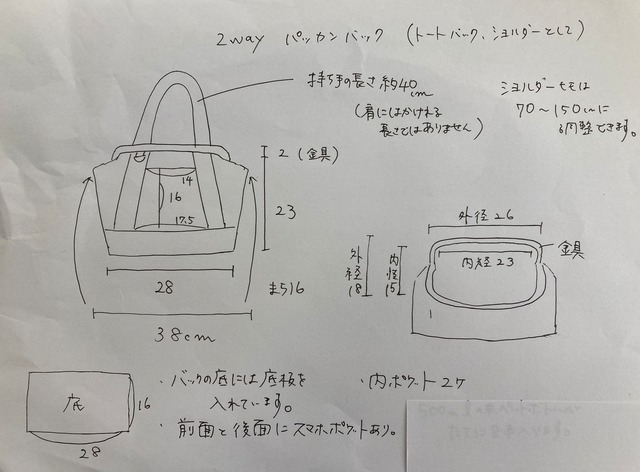 2way パッカンバック (トートバック、ショルダーとして)
持ち手の長さ約40cm
(肩にはかけれる
長さではありません)
ショルダーヒモは
70〜150cmに
調整できます。
2 (金具)
14
16
17.5
23
28
まち16
38cm
外径26
金具
内径23
外径18
内径15
底
16
28
・バックの底には底板を
入れています。
・前面と後面にスマホポケットあり。
・内ポケット2ケ